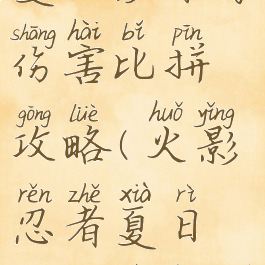 shāng hài bǐ pīn
伤害比拼
gōng lüè huǒ yǐng
攻略(火影
rěn zhě xià rì
忍者夏日